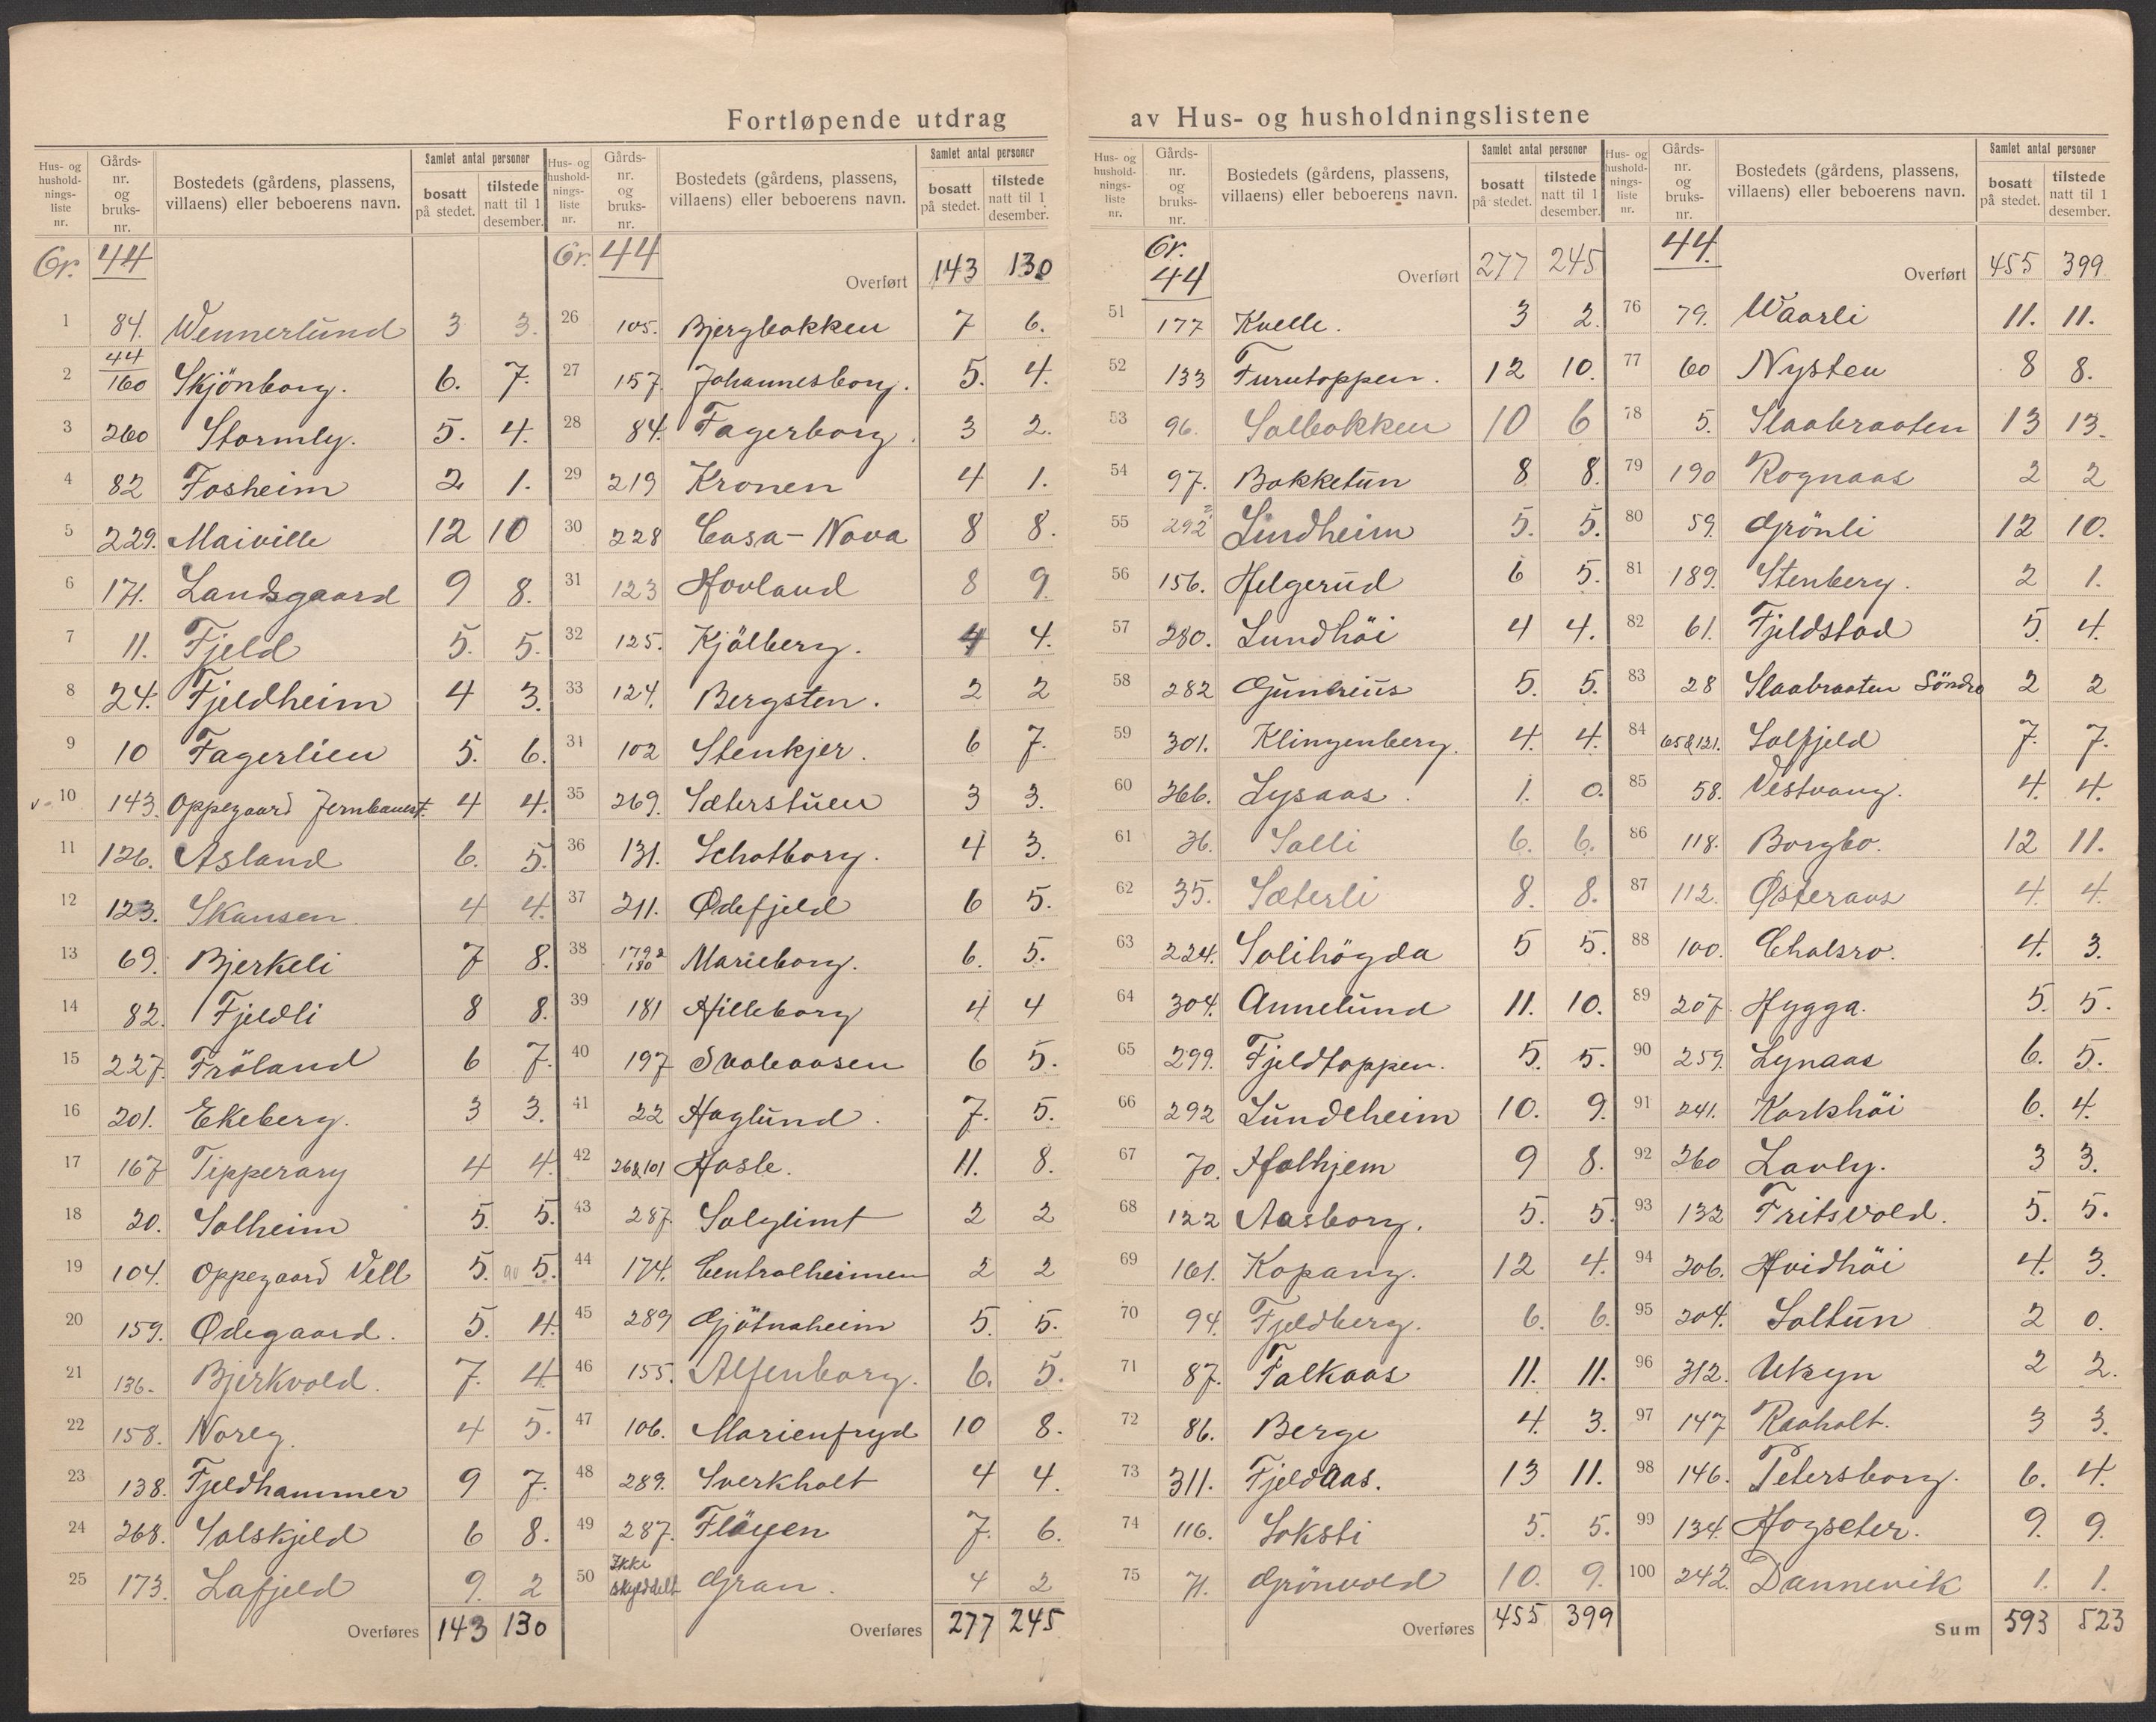 Fortløpende utdrag av Hus- og husholdningslistene
Hus- og husholdnings- liste nr. | Gårds- nr. og bruks- nr. | Bostedets (gårdens, plassens, villaens) eller beboerens navn. | Samlet antal personer | bosatt på stedet. | tilstede natt til 1 desember.
Gr. 44
1 84. Wennerlund 3 3.
2 44/160 Skjönborg. 6. 7.
3 260 Stormly. 5. 4.
4 82 Fosheim 2 1.
5 229. Maiville 12 10
6 171. Landsgaard 9 8.
7 11. Fjeld 5. 5.
8 24. Fjeldheim 4 3.
9 10 Fagerlien 5. 6.
v- 10 143. Oppegaard Jernbanest. 4 4.
11 126. Asland 6. 5.
12 123. Skansen 4 4.
13 69. Bjerkeli 7 8.
14 82. Fjeldli 8 8.
15 227. Fröland 6 7.
16 201. Ekeberg. 3 3.
17 167 Tipperary 4 4.
18 20. Solheim 5. 5.
19 104. Oppegaard Vell 5. 5.
20 159. Ødegaard. 5. 4.
21 136. Bjerkvold. 7. 4
22 158. Noreg. 4 5.
23 138. Fjeldhammer 9 7.
24 268. Solskjeld 6 8.
25 173. Lafjeld 9. 2
Overføres 143 130
Hus- og husholdnings- liste nr. | Gårds- nr. og bruks- nr. | Bostedets (gårdens, plassens, villaens) eller beboerens navn. | Samlet antal personer | bosatt på stedet. | tilstede natt til 1 desember.
Gr. 44 Overført 143 130
26 105. Bjergbakken 7 6.
27 157. Johannesborg. 5. 4.
28 84. Fagerborg. 3 2.
29 219 Kronen 4 1.
30 228 Casa-Nova 8 8.
31 123 Hovland 8 9.
32 125. Kjölberg. 4 4.
33 124. Bergsten. 2 2
34 102 Stenkjer. 6 7.
35 269. Sæterstuen 3 3.
36 131. Schatborg. 4 3.
37 211. Ødefjeld 6 5.
38 179 & 180 Marieborg. 6. 5.
39 181 Hilleborg 4 4
40 197 Svaleaasen 6 5.
41 22 Haglund. 7. 5.
42 26&101 Hasle. 11. 8.
43 287. Solglimt 2 2
44 174. Centralheimen 2 2
45 289 Gjötnaheim 5. 5.
46 155. Alfenborg. 6. 5.
47 106. Marienfryd 10 8.
48 289. Sverkholt 4 4.
49 287. Flöyen 7. 6.
50 Ikke skylddelt Gran. 4 2
Overføres 277 245
Hus- og husholdnings- liste nr. | Gårds- nr. og bruks- nr. | Bostedets (gårdens, plassens, villaens) eller beboerens navn. | Samlet antal personer | bosatt på stedet. | tilstede natt til 1 desember.
Gr. 44 Overført 277 245
51 177 Kvelle. 3 2.
52 133 Furutoppen. 12 10.
53 96. Solbakken 10 6
54 97. Bakketun 8 8.
55 292 Lindheim 5. 5.
56 156. Helgerud 6 5.
57 280. Lundhöi 4 4.
58 282 5. 5.
59 301. Klingenberg. 4. 4.
60 266. Lysaas. 1. 0.
61 36. Solli 6. 6.
62 35. Sæterli 8. 8.
63 224. Solihögda 5 5.
64 304. Annelund 11. 10.
65 299. Fjeldtoppen. 5. 5.
66 292 Lundeheim 10. 9.
67 70. Halhjem 9 8.
68 122 Aasborg. 5. 5.
69 161. Kopang. 12 4.
70 94. Fjeldberg. 6. 6.
71 87. Falkaas 11. 11.
72 86. Berge 4. 3.
73 311. Fjeldaas. 13 11.
74 116. Soksti 5. 5.
75 71. Grönvold 10. 9.
Overføres 455 399
Hus- og husholdnings- liste nr. | Gårds- nr. og bruks- nr. | Bostedets (gårdens, plassens, villaens) eller beboerens navn. | Samlet antal personer | bosatt på stedet. | tilstede natt til 1 desember.
44. Overført 455 399
76 79. Waarli 11. 11.
77 60 Nysten 8 8.
78 5. Slaabraaten 13 13.
79 190 Rognaas 2 2
80 59. Grönli 12 10.
81 189. Stenberg. 2 1.
82 61. Fjeldstad 5. 4.
83 28 Slaabraaten Söndre 2 2
84 65&121. Solfjeld 7. 7.
85 58. Vestvang. 4. 4.
86 118. Borgbo. 12 11.
87 112. Østeraas 4. 4.
88 100. Chalsro. 4. 3.
89 207. Hygga. 5. 5.
90 259. Lynaas 6. 5.
91 241. Korkhöi 6. 4.
92 260 Lavly. 3 3.
93 132 Fritsvold. 5. 5.
94 206. Hvidhöi 4. 3.
95 204. Soltun 2 0.
96 312. Utsyn 2 2.
97 147 Raaholt. 3 3.
98 146. Petersborg. 6. 4.
99 134. Hogseter. 9. 9.
100 242. Dannevik 1. 1.
Sum 593 523